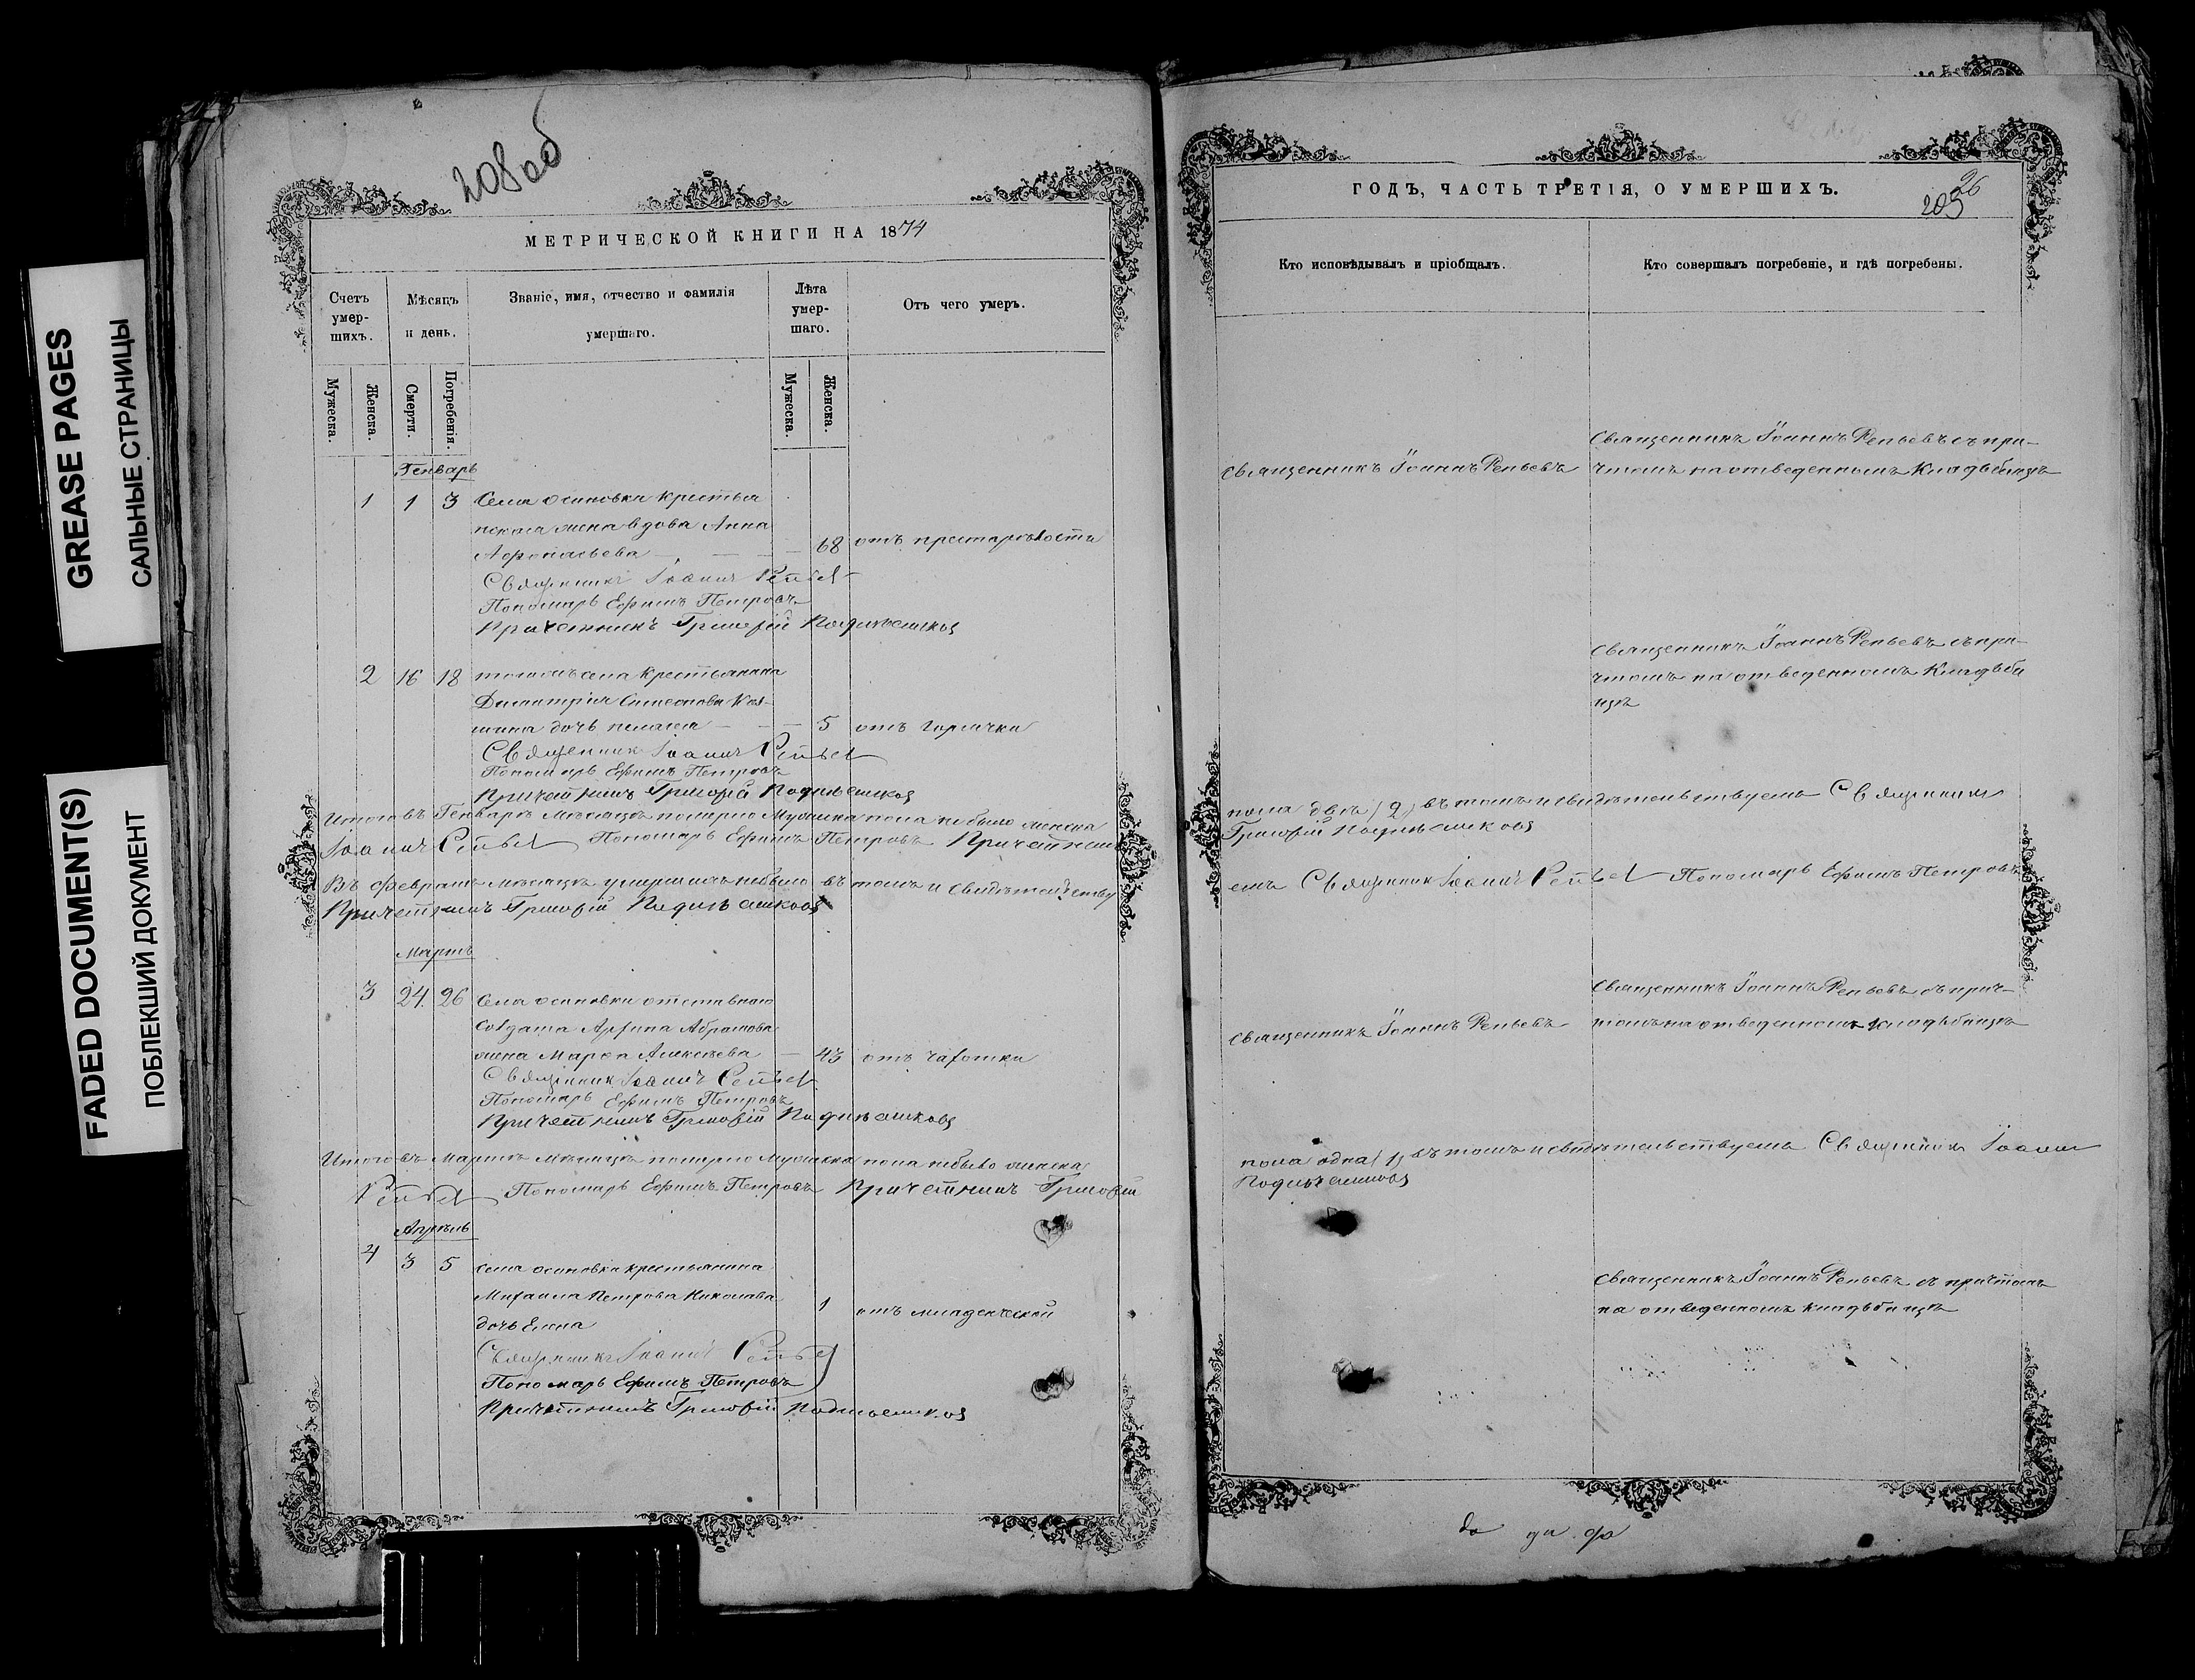 GREASE PAGES
САЛЬНЫЕ СТРАНИЦЫ
FADED DOCUMENT(S)
ПОБЛЕКШИЙ ДОКУМЕНТ
208 об
МЕТРИЧЕСКОЙ КНИГИ НА 1874
Счетъ умер-шихъ.
Мѣсяцъ и день.
Званіе, имя, отчество и фамилія умершаго.
Лѣта умер-шаго.
Отъ чего умеръ.
Мужеска.
Женска.
Смерти.
Погребенія.
Мужеска.
Женска.
Генварь
1 1 3 Села осиновки крестья
нская жена вдова Анна
Афонасьева 68 отъ престарѣлости
Священникъ Іоаннъ Репьев
Пономарь Ефимъ Петровъ
Причетникъ Григорій
2 16 18 тогожъ села крестьянина
Димитрія Симеонова
дочь пелагея 5 отъ горячки
Священник Іоаннъ Репьев
Пономарь Ефимъ Петровъ
Причетникъ Григорій
Итого въ Генварѣ мѣсяцѣ померло Мужеска пола небыло женска
Іоаннъ Репьев Пономарь Ефимъ Петровъ Причетникъ
Въ февралѣ мѣсяцѣ умершихъ небыло въ томъ и свидѣтельству
Причетникъ Григорій
Мартъ
3 24 26 Села осиновки отставного
солдата Архипа Абрамова
жена Марѳа Алексѣева 43 отъ чахотки
Священник Іоаннъ Репьев
Пономарь Ефимъ Петровъ
Причетникъ Григорій
Итого въ Мартѣ мѣсяцѣ померло Мужеска пола небыло женска
Репьев Пономарь Ефимъ Петровъ Причетникъ Григорій
Апрѣль
4 3 5 села осиновки крестьянина
Михаила Петрова Николаева
дочь Елена 1 отъ младенческой
Священникъ Іоаннъ Репьев
Пономарь Ефимъ Петровъ
Причетникъ Григорій
ГОДЪ, ЧАСТЬ ТРЕТІЯ, О УМЕРШИХЪ.
26
209
Кто исповѣдывалъ и пріобщалъ.
Кто совершалъ погребеніе, и гдѣ погребены.
Священникъ Іоаннъ Репьевъ съ при-
Священникъ Іоаннъ Репьевъ чтомъ на отведенномъ Кладбищѣ
Священникъ Іоаннъ Репьевъ съ при-
чтомъ на отведенномъ Кладби
щѣ
пола двѣ (2) въ томъ и свидѣтельствуемъ Священникъ
Григорій
емъ Священник Іоаннъ Репьев Пономарь Ефимъ Петровъ
Священникъ Іоаннъ Репьевъ съ прич-
Священникъ Іоаннъ Репьевъ томъ на отведенномъ кладбищѣ
пола одна (1) въ томъ и свидѣтельствуемъ Священник Іоаннъ
Священникъ Іоаннъ Репьевъ съ причтомъ
на отведенномъ кладбищѣ